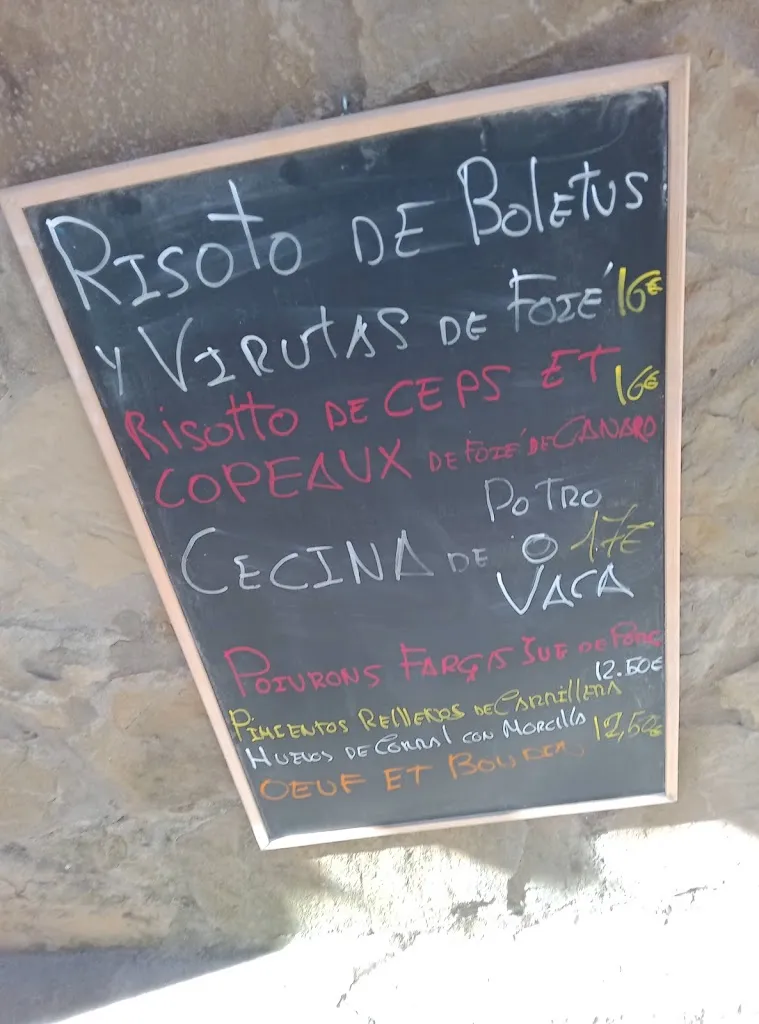 RISOTO DE BOLETUS
Y VIRUTAS DE FOIE' 16€
RISOTTO DE CEPS ET 16€
COPEAUX DE FOIE' DE CANARD
POTRO
CECINA DE O 17€
VACA
POIVRONS FARÇIS JUE DE
12.50€
PIMIENTOS RELLENOS DE CARRILLERA
HUEVOS DE CORRAL CON MORCILLA 12,50€
OEUF ET BOUDIN